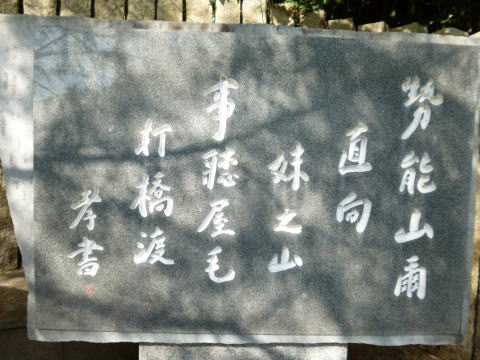 勢能山爾
直向
妹之山
事聴屋毛
打橋渡
孝書